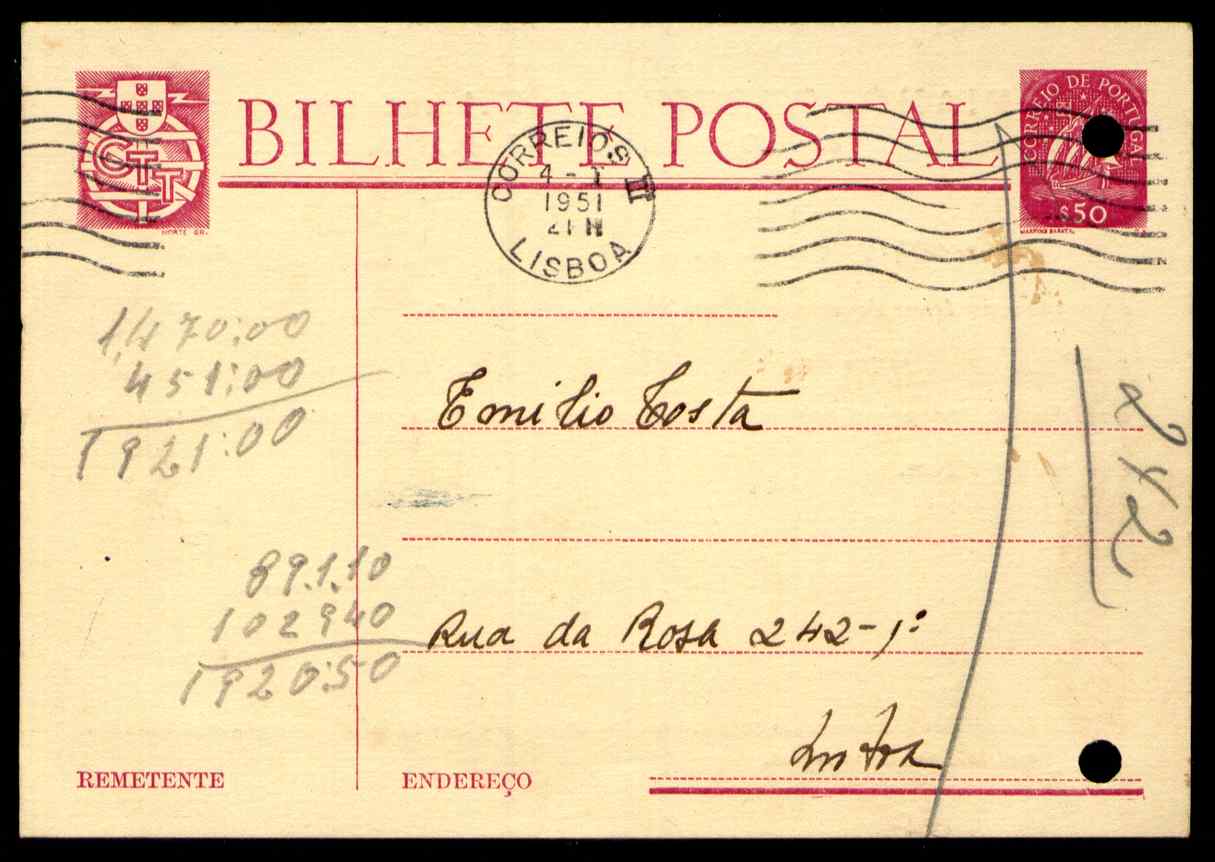 BILHETE POSTAL
CTT
NORTE GR.
CORREIO DE PORTUGAL
$50
MARTINS BARATA
CORREIOS III
4 - I
1951
21 H
LISBOA
1,470:00
451:00
1921:00
Emilio Costa
242
891.10
102940
1920:50
Rua da Rosa 242-1º
Lisboa
REMETENTE
ENDEREÇO